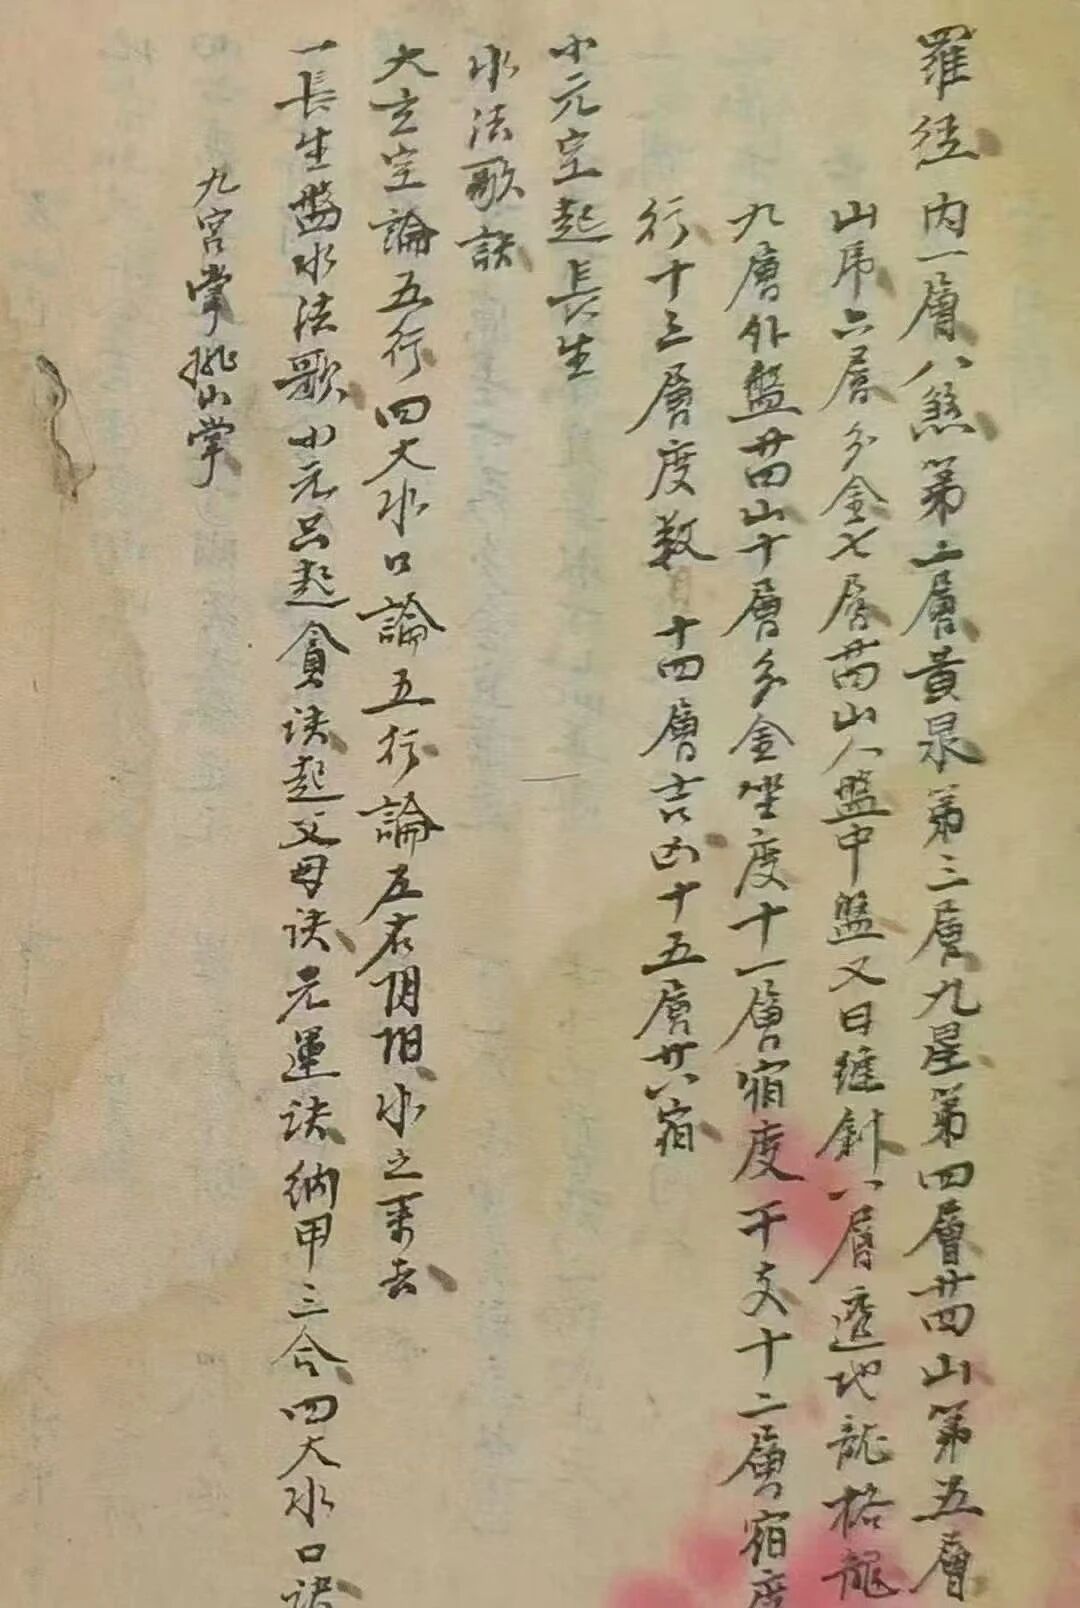 羅经内一層八煞第二層黄泉第三層九星第四層廿四山第五層
山弔六層分金七層廿四山人盤中盤又曰縫針八層透地龍格龍
九層外盤廿四山十層分金坐度十一層宿度干支十二層宿度
行十三層度数十四層吉凶十五層廿八宿
小元空起長生
水法歌訣
大玄空論五行四大水口論五行論左右阴阳水之来去
一長生盤水法歌廿元吕起貪诀起父母诀元運诀納甲三合四大水口诀
九宫掌挑山掌